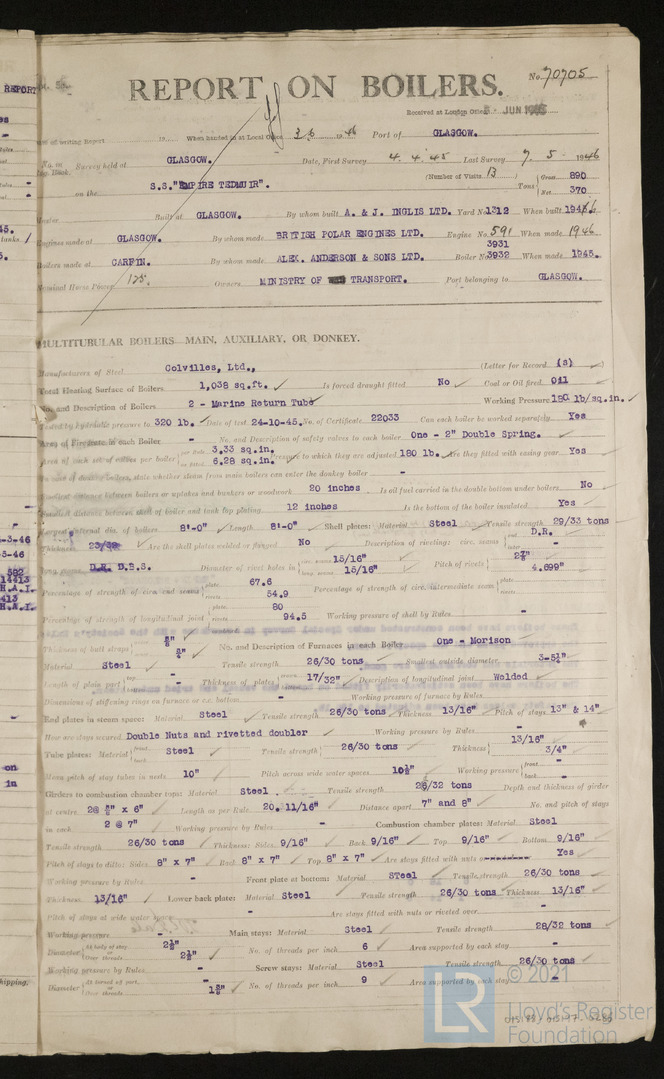 REPORT ON BOILERS.
No. 70705
Received at London Office JUN 1946
of writing Report When handed in at Local Office 3.6. 1946 Port of GLASGOW.
No. in Survey held at GLASGOW. Date, First Survey 4.4.45 Last Survey 7.5. 1946
(Number of Visits 13)
on the S.S. "EMPIRE TEDMUIR". Tons Gross 890 Net 370
Master Built at GLASGOW. By whom built A. & J. INGLIS LTD. Yard No. 1312 When built 1946
Engines made at GLASGOW. By whom made BRITISH POLAR ENGINES LTD. Engine No. 591 When made 1946
Boilers made at CARFIN. By whom made ALEX. ANDERSON & SONS LTD. Boiler No. 3931 3932 When made 1945.
Nominal Horse Power 175. Owners MINISTRY OF TRANSPORT. Port belonging to GLASGOW.
MULTITUBULAR BOILERS MAIN, AUXILIARY, OR DONKEY.
Manufacturers of Steel Colvilles, Ltd., (Letter for Record (S) )
Total Heating Surface of Boilers 1,038 sq.ft. Is forced draught fitted No Coal or Oil fired Oil
No. and Description of Boilers 2 - Marine Return Tube Working Pressure 180 lb/sq.in.
Tested by hydraulic pressure to 320 lb. Date of test 24-10-45. No. of Certificate 22033 Can each boiler be worked separately Yes
Area of Firegrate in each Boiler - No. and Description of safety valves to each boiler One - 2" Double Spring.
Area of each set of valves per boiler 3.33 sq.in. 6.28 sq.in. Pressure to which they are adjusted 180 lb. Are they fitted with easing gear Yes
In case of donkey boilers, state whether steam from main boilers can enter the donkey boiler -
Smallest distance between boilers or uptakes and bunkers or woodwork 20 inches Is oil fuel carried in the double bottom under boilers No
Smallest distance between shell of boiler and tank top plating 12 inches Is the bottom of the boiler insulated Yes
Largest internal dia. of boilers 8'-0" Length 8'-0" Shell plates: Material Steel Tensile strength 29/33 tons
Thickness 23/32 Are the shell plates welded or flanged No Description of riveting: circ. seams end D.R.
long. seams D.R. D.B.S. Diameter of rivet holes in circ. seams 15/16" long. seams 15/16" Pitch of rivets 4.699"
Percentage of strength of circ. end seams plate 67.6 rivets 54.9 Percentage of strength of circ. intermediate seam plate rivets
Percentage of strength of longitudinal joint plate 80 rivets 94.5 Working pressure of shell by Rules -
Thickness of butt straps No. and Description of Furnaces in each Boiler One - Morison
Material Steel Tensile strength 26/30 tons Smallest outside diameter
Length of plain part top bottom Thickness of plates 17/32" Description of longitudinal joint Welded
Dimensions of stiffening rings on furnace or c.c. bottom - Working pressure of furnace by Rules
End plates in steam space: Material Steel Tensile strength 26/30 tons Thickness 13/16" Pitch of stays 13" & 14"
How are stays secured Double Nuts and rivetted doubler Working pressure by Rules -
Tube plates: Material front back Steel Tensile strength 26/30 tons Thickness 13/16" 3/4"
Mean pitch of stay tubes in nests 10" Pitch across wide water spaces 10½" Working pressure front - back -
Girders to combustion chamber tops: Material Steel. Tensile strength 28/32 tons Depth and thickness of girder
at centre 2@ 5/8" x 6" Length as per Rule 20.11/16" Distance apart 7" and 8" No. and pitch of stays
in each 2 @ 7" Working pressure by Rules - Combustion chamber plates: Material Steel
Tensile strength 26/30 tons Thickness: Sides 9/16" Back 9/16" Top 9/16" Bottom 9/16"
Pitch of stays to ditto: Sides 8" x 7" Back 8" x 7" Top 8" x 7" Are stays fitted with nuts or Yes
Working pressure by Rules - Front plate at bottom: Material STeel Tensile strength 26/30 tons
Thickness 13/16" Lower back plate: Material Steel Tensile strength 26/30 tons Thickness 13/16"
Pitch of stays at wide water space - Are stays fitted with nuts or riveted over -
Working pressure - Main stays: Material Steel Tensile strength 28/32 tons
Diameter At body of stay 2½" Over threads 2½" No. of threads per inch 6 Area supported by each stay -
Working pressure by Rules - Screw stays: Material Steel Tensile strength 26/30 tons
Diameter At turned off part, - Over threads No. of threads per inch 9 Area supported by each stay -
© 2021
Lloyd's Register
Foundation
LR